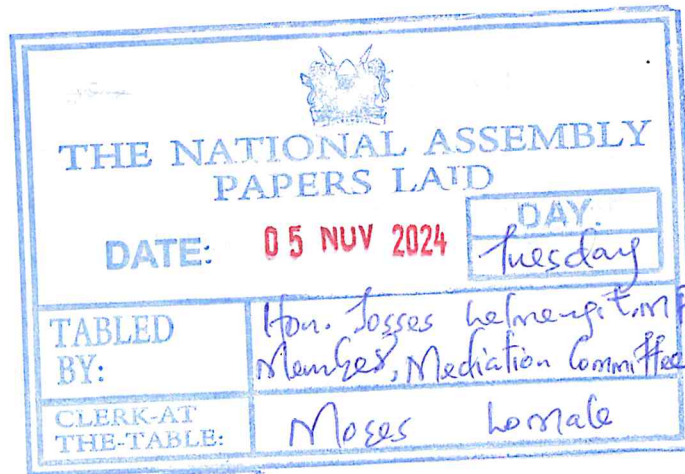 THE NATIONAL ASSEMBLY
PAPERS LAID
DATE: 05 NOV 2024
DAY.
Tuesday
TABLED BY:
Hon. Josses Lelmengit, MP
Member, Mediation Committee
CLERK-AT THE-TABLE:
Moses